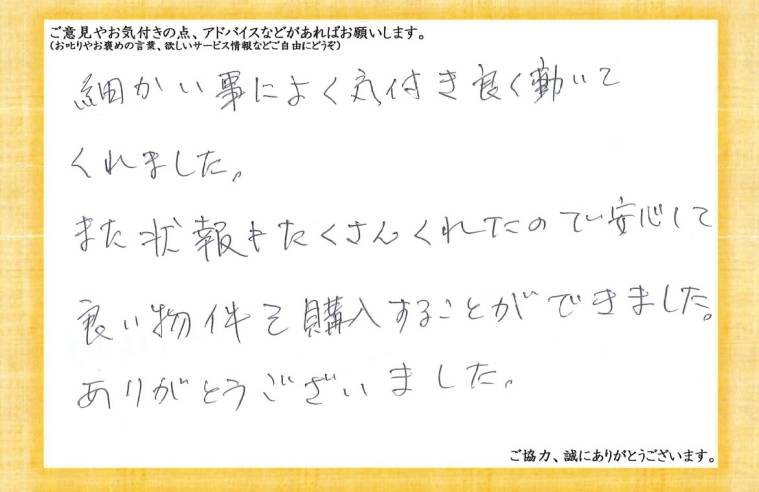 ご意見やお気付きの点、アドバイスなどがあればお願いします。
(お叱りやお褒めの言葉、欲しいサービス情報などご自由にどうぞ)
細かい事によく気付き良く動いて
くれました。
また状報もたくさんくれたので安心して
良い物件を購入することができました。
ありがとうございました。
ご協力、誠にありがとうございます。